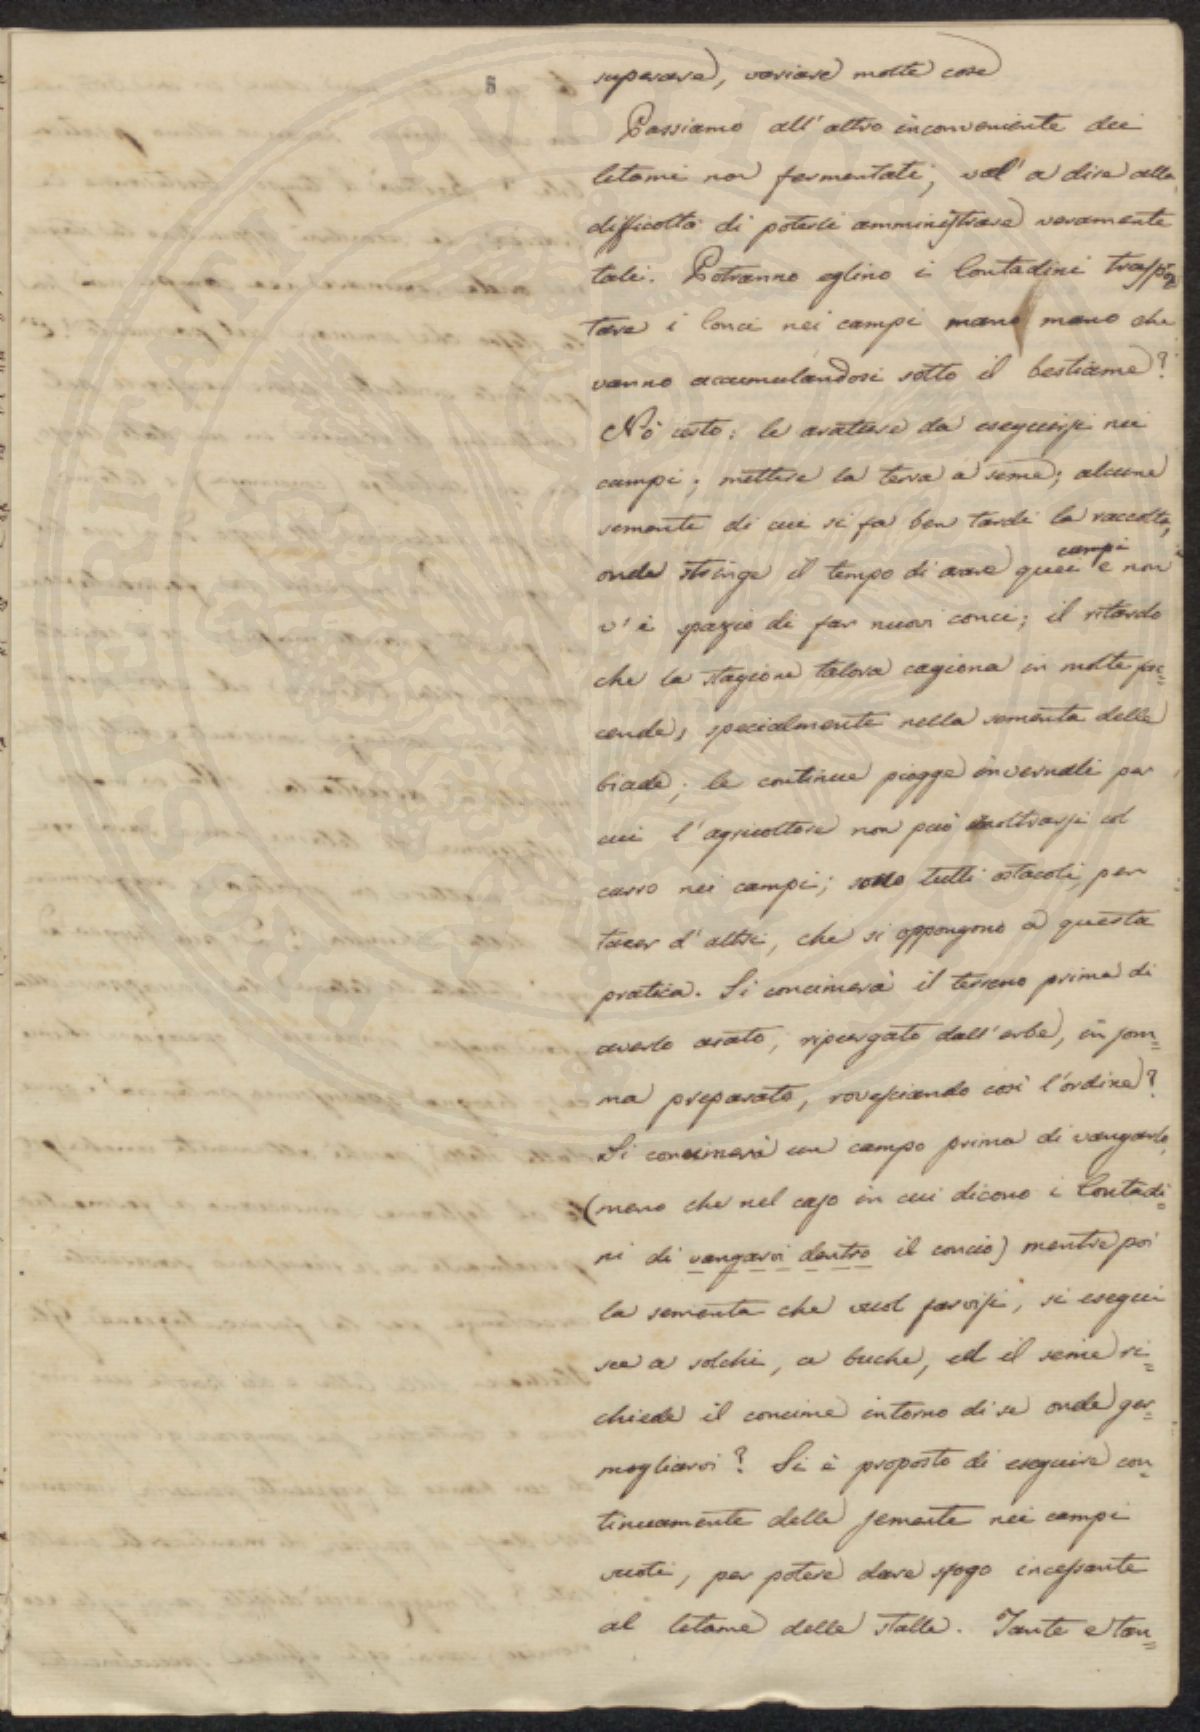 8
superare, variare molte cose
Passiamo all'altro inconveniente dei
letami non fermentati, val' a dire alla
difficoltà di poterli amministrare veramente
tali. Potranno eglino i Contadini traspor=
tare i Conci nei campi mano mano che
vanno accumulandosi sotto il bestiame?
Nò certo: le arature da eseguirsi nei
campi; mettere la terra a seme; alcune
sementi di cui si fa ben tardi la raccolta,
onde stringe il tempo di arare quei campi e non
v'è spazio di far nuovi conci; il ritardo
che la stagione talora cagiona in molte fac=
cende, specialmente nella sementa delle
biade; le continue piogge invernali per
cui l'agricoltore non può inoltrarsi col
carro nei campi; sono tutti ostacoli, per
tacer d'altri, che si oppongono a questa
pratica. Si concimerà il terreno prima di
averlo arato, ripurgato dall'erbe, in som=
ma preparato, rovesciando così l'ordine?
Si concimerà un campo prima di vangarlo,
(meno che nel caso in cui dicono i Contadi=
ni di vangarvi dentro il concio) mentre poi
la sementa che vuol farvisi, si esegui
sce a solchi, a buche, ed il seme ri=
chiede il concime intorno di se onde ger=
mogliarvi? Si è proposto di eseguire con=
tinuamente delle semente nei campi
vuoti, per potere dare sfogo incessante
al letame delle stalle. Tante e tan=